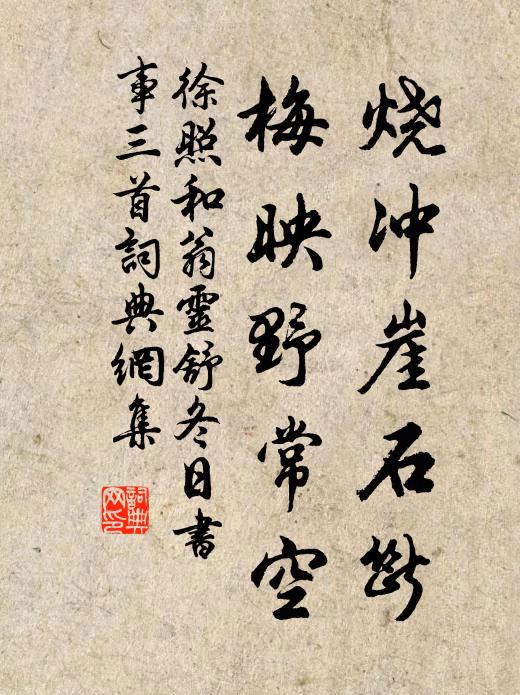 烧冲崖石断
梅映野常空
徐照和翁靈舒冬日書
事三首詞典網集
詞典网印